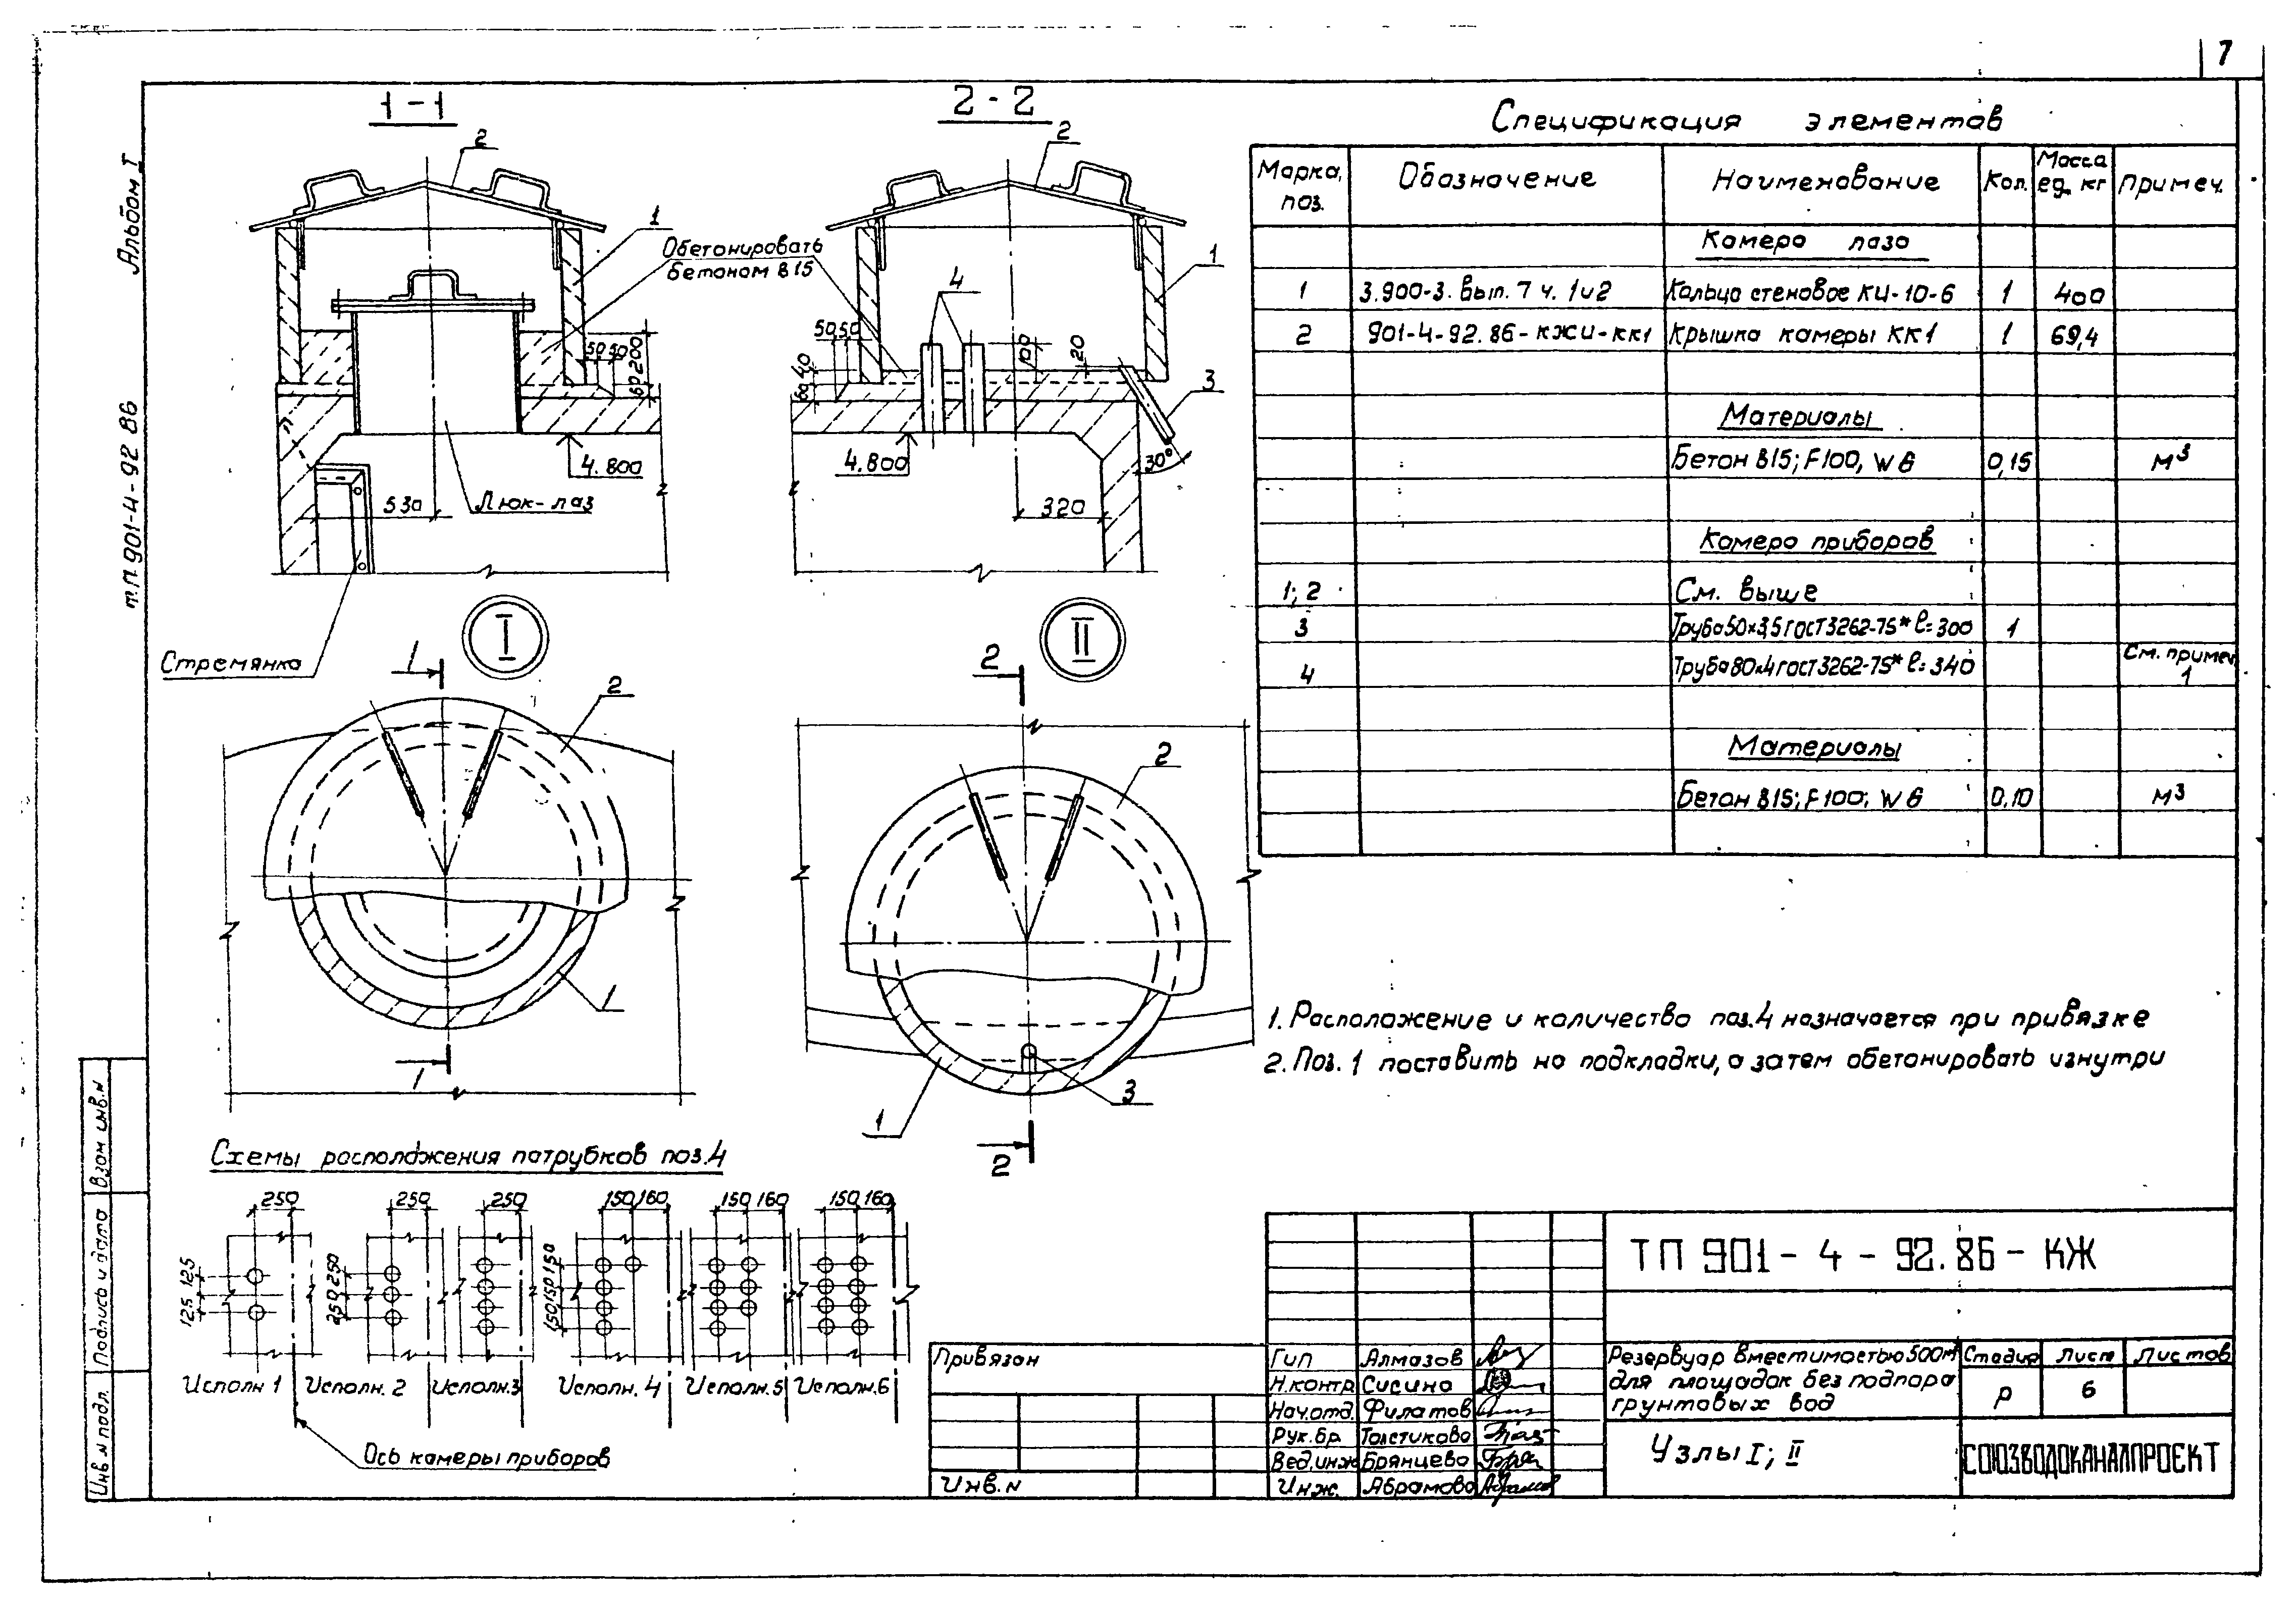 7
Альбом I
т.п. 901-4-92 86
1-1
2
1
Обетонировать
бетоном В15
50 50
200
60
4.800
530
Люк-лаз
Стремянка
2-2
2
1
4
50 50
40
60
100
20
3
30°
4.800
320
I
1
2
1
1
II
2
2
1
3
2
Спецификация элементов
Марка, поз. Обозначение Наименование Кол. Масса ед. кг Примеч.
Камера лаза
1 3.900-3. Вып. 7 ч. 1и2 Кольцо стеновое КЦ-10-6 1 400
2 901-4-92.86-КЖИ-КК1 Крышка камеры КК1 1 69,4
Материалы
Бетон В15; F100, W6 0,15 м³
Камера приборов
1; 2 См. выше
3 Труба 50×3,5 ГОСТ 3262-75* ℓ=300 1
4 Труба 80×4 ГОСТ 3262-75* ℓ=340 См. примеч. 1
Материалы
Бетон В15; F100; W6 0,10 м³
1. Расположение и количество поз.4 назначается при привязке
2. Поз. 1 поставить на подкладки, а затем обетонировать изнутри
Схемы расположения патрубков поз.4
250 250 250 150 160 150 160 150 160
125 125
250 250
150 150 150
Исполн 1 Исполн. 2 Исполн.3 Исполн. 4 Исполн.5 Исполн.6
Ось камеры приборов
Взам инв.N
Подпись и дата
Инв. N подл.
Привязан
Инв. N
ТП 901-4-92.86-КЖ
Гип Алмазов
Н.контр Сисина
Нач.отд. Филатов
Рук.бр. Толстикова
Вед.инж Брянцева
Инж. Абрамова
Резервуар вместимостью 500м³
для площадок без подпора
грунтовых вод
Стадия Лист Листов
р 6
Узлы I; II
СОЮЗВОДОКАНАЛПРОЕКТ